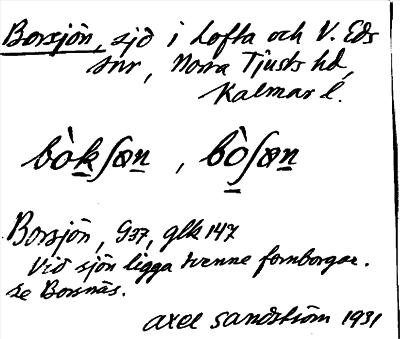 Borsjön, sjö i Lofta och V. Eds
snr, Norra Tjusts hd,
Kalmar l.
bòkʃøn, bòʃøn
Borsjön, G37, glk 147
Vid sjön ligga tvenne fornborgar.
Se Borsnäs.
Axel Sandström 1931